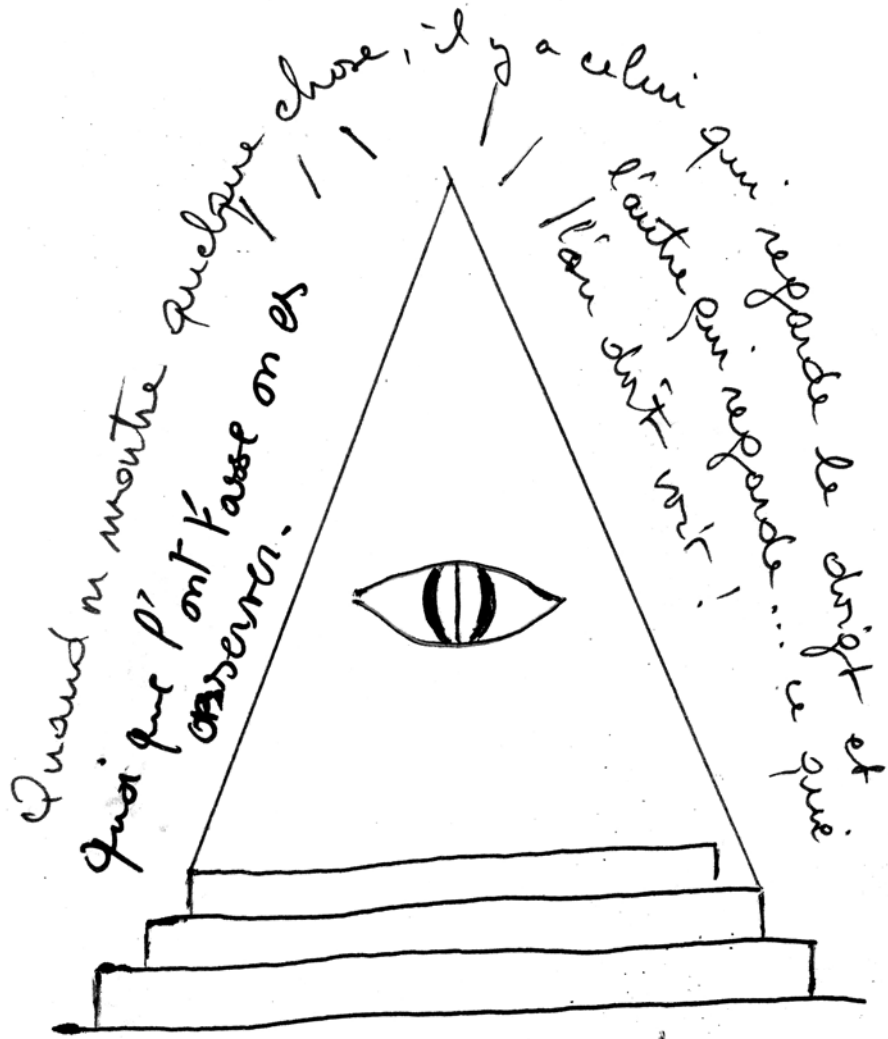 Quand on montre quelque chose, il y a celui qui regarde le doigt et
l'autre qui regarde... ce que
l'on doit voir !
quoi que l'ont fasse on es
observer.